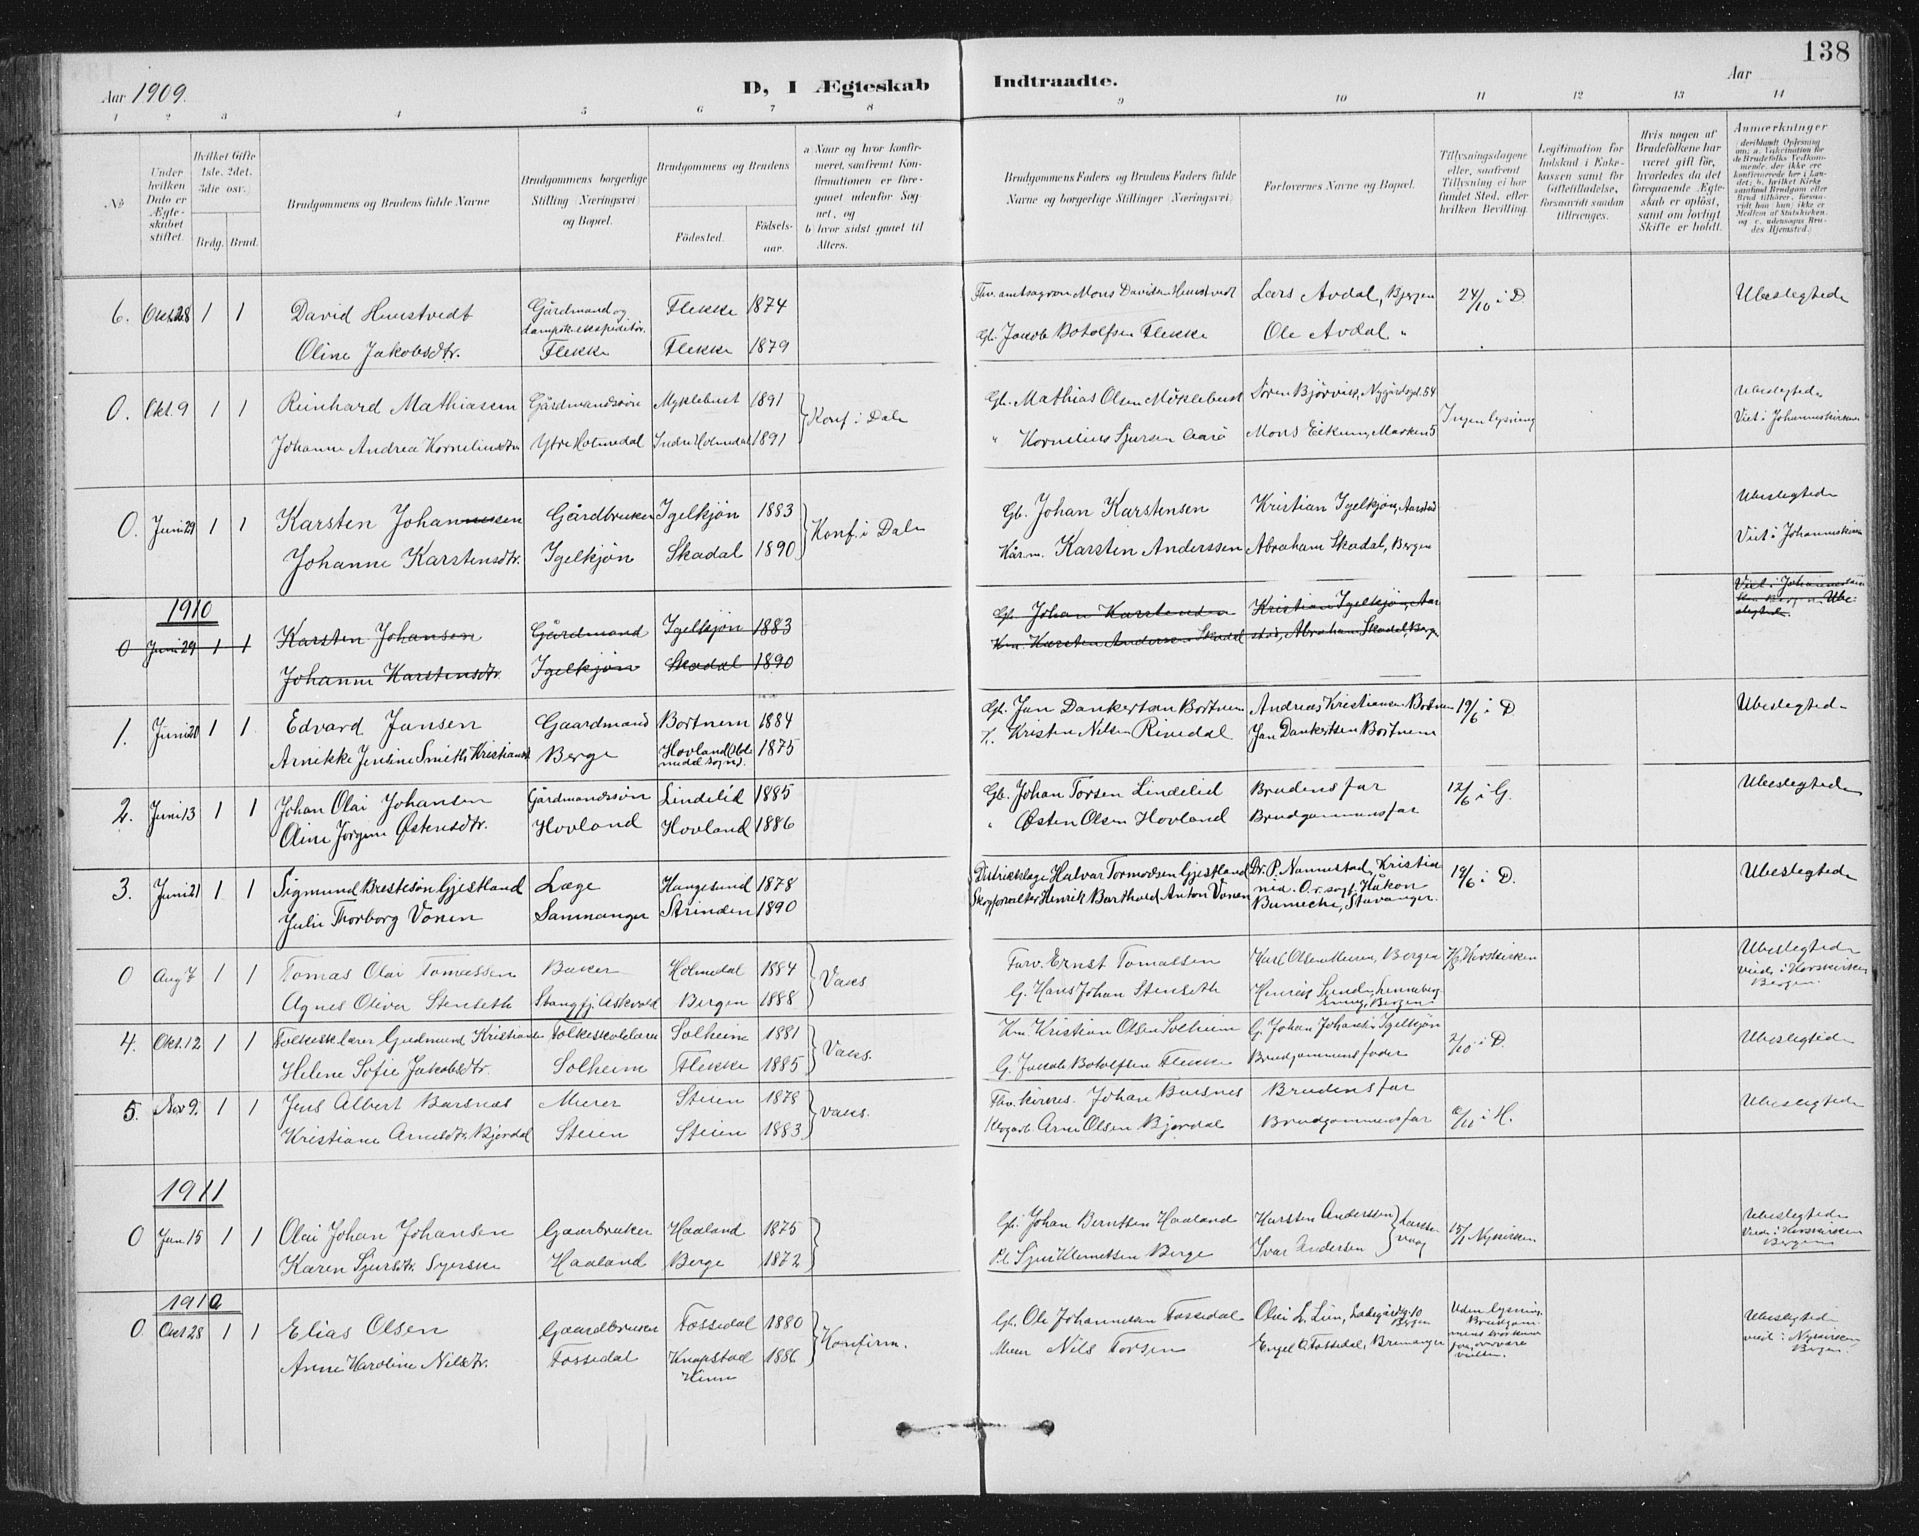 138
Aar 1909.
D, I Ægteskab Indtraadte.
Aar
1 2 3 4 5 6 7 8 9 10 11 12 13 14
No
Under hvilken Dato er Ægteskabet stiftet.
Hvilket Gifte 1ste, 2det, 3die osv.)
Brdg. Brud.
Brudgommens og Brudens fulde Navne
Brudgommens borgerlige Stilling (Næringsvei) og Bopæl.
Brudgommens og Brudens
Fødested.
Fødselsaar.
a Naar og hvor konfirmeret, saafremt Konfirmationen er foregaaet udenfor Sognet, og
b) hvor sidst gaaet til Alters.
Brudgommens Faders og Brudens Faders fulde Navne og borgerlige Stillinger (Næringsvei)
Forlovernes Navne og Bopæl.
Tillysningsdagene eller, saafremt Tillysning ei har fundet Sted, efter hvilken Bevilling.
Legitimation for Indskud i Enkekassen samt for Giftetilladelse, forsaavidt saadan tiltrænges.
Hvis nogen af Brudefolkene har været gift før, hvorledes da det foregaaende Ægteskab er opløst, samt om lovligt Skifte er holdt.
Anmærkninger (deriblandt Oplysning om: a. Vakcination for de Brudefolks Vedkommende, der ikke ere konfirmerede her i Landet; b. hvilket Kirkesamfund Brudgom eller Brud tilhører, forsaavidt han (hun) ikke er Medlem af Statskirken, og c. udensogns Brudes Hjemsted.)
6. Okt 28 1 1 David Hemstvedt Gårdmand og Flekke 1874 Mons Davidsen Hemstvedt Lars Avdal, Bergen 24/10 i D. Ubeslegtede
dampsk.ekspeditør.
Oline Jakobsdtr. Flekke Flekke 1879 Gb. Jakob Botolfsen Flekke Ole Avdal "
0. Okt. 9 1 1 Reinhard Mathiasen Gårdmandssøn Myklebust 1891 Konf. i Dale Gb. Mathias Olsen Möklebust Søren Bjørvik, Nygårdsgd. 54 Ingen lysning Ubeslegtede
Johanne Andrea Korneliusdtr Ytre Holmedal Indre Holmedal 1891 " Kornelius Sjursen Aarø Mons Eikum, Marken 5 Viet i Johanneskirken
0. Juni 29 1 1 Karsten Johannesen Gårdbruker Igelkjøn 1883 Konf. i Dale Gb. Johan Karstensen Kristian Igelkjøn, Aarstad Ubeslegtede
Johanne Karstensdtr. Igelkjøn Skadal 1890 Kårm. Karsten Anderssen Abraham Skadal, Bergen Viet i Johanneskirken
1910
0 Juni 29 1 1 Karsten Johansen Gårdmand Igelkjøn 1883 Gb. Johan Karstensen Kristian Igelkjøn, Aar
Johanne Karstensdtr. Igelkjøn Skadal 1890 Km. Karsten Andersen Skadal stad, Abraham Skadal, Berg.
Viet i Johanneskirken Bergen. Ubeslegtede.
1. Juni 20 1 1 Edvard Jansen Gaardmand Bortnem 1884 Gb. Jan Dankertsen Bortnem Andreas Kristiansen Bortnem 19/6 i D. Ubeslegtede
Arnikke Jentine Smith Kristiansd Berge Hovland (Holmedal sogn). 1875 K. Kristen Nilsen Rivedal Jan Dankertsen Bortnem
2. Juni 13 1 1 Johan Olai Johansen Gårdmandssøn Lindelid 1885 Gb. Johan Torsen Lindelid Brudens far 12/6 i G. Ubeslegtede
Oline Jørgine Østensdtr. Hovland Hovland 1886 " Østen Olsen Hovland Brudgommens far
3. Juni 21 1 1 Sigmund Brestesøn Gjestland Læge Haugesund 1878 Distriktslæge Halvar Tormodsen Gjestland Dr. P. Nannestad, Kristia 19/6 i D. Ubeslegtede
Juli Thorborg Vonen Sammanger Strinden 1890 Skogforvalter Henrik Barthold Anton Vonen nia. O.r. sagf. Håkon
Stavanger.
0 Aug 7 1 1 Tomas Olai Tomassen Baker Holmedal 1884 Vaks Farv. Ernst Tomassen Karl Olsen Murer, Bergen 7/8 Korskirken Ubeslegtede
Agnes Oliva Stenseth Stangfj. Askvold Bergen 1888 G. Hans Johan Stenseth viede i Korskirken Bergen.
4. Okt. 12 1 1 Folkeskl.ærer Gudmund Kristiansen Folkeskolelærer Solheim 1881 Vaks. Km Kristian Olsen Solheim G. Johan Johansen Igelkjøn 2/10 i D. Ubeslegtede
Helene Sofie Jakobsdtr. Solheim Flekke 1885 G. Jakob Botolfsen Flekke Brudgommens fader
5. Nov 9. 1 1 Jens Albert Barsnes Murer Steien 1878 vaks. Johan Barsnes Brudens far 6/11 i H. Ubeslegtede
Kristiane Arnesdtr. Bjordal Steien Steien 1883 Arne Olsen Bjordal Brudgommens far
1911
0 Jan. 15 1 1 Olai Johan Johansen Gaarbruker Haaland 1875 Gb. Johan Berntsen Haaland Karsten Anderssen 15/1 Nykirken Ubeslegtede
Karen Sjursdtr. Syerske Haaland Berge 1872 Pl. Sjur Klemetsen Berge Ivar Andersen viede i Korskirken Bergen
1910
0. Okt 28 1 1 Elias Olsen Gaardbruker Fossedal 1880 Konfirm. Gb. Ole Johannessen Fossedal Uden lysning Ubeslegtede
Anne Karoline Nilsdtr. Fossedal Knapstad 1886 Murer Nils Torsen Engel O. Fossedal, Bremanger viede i Nykirken Bergen.
Hinn